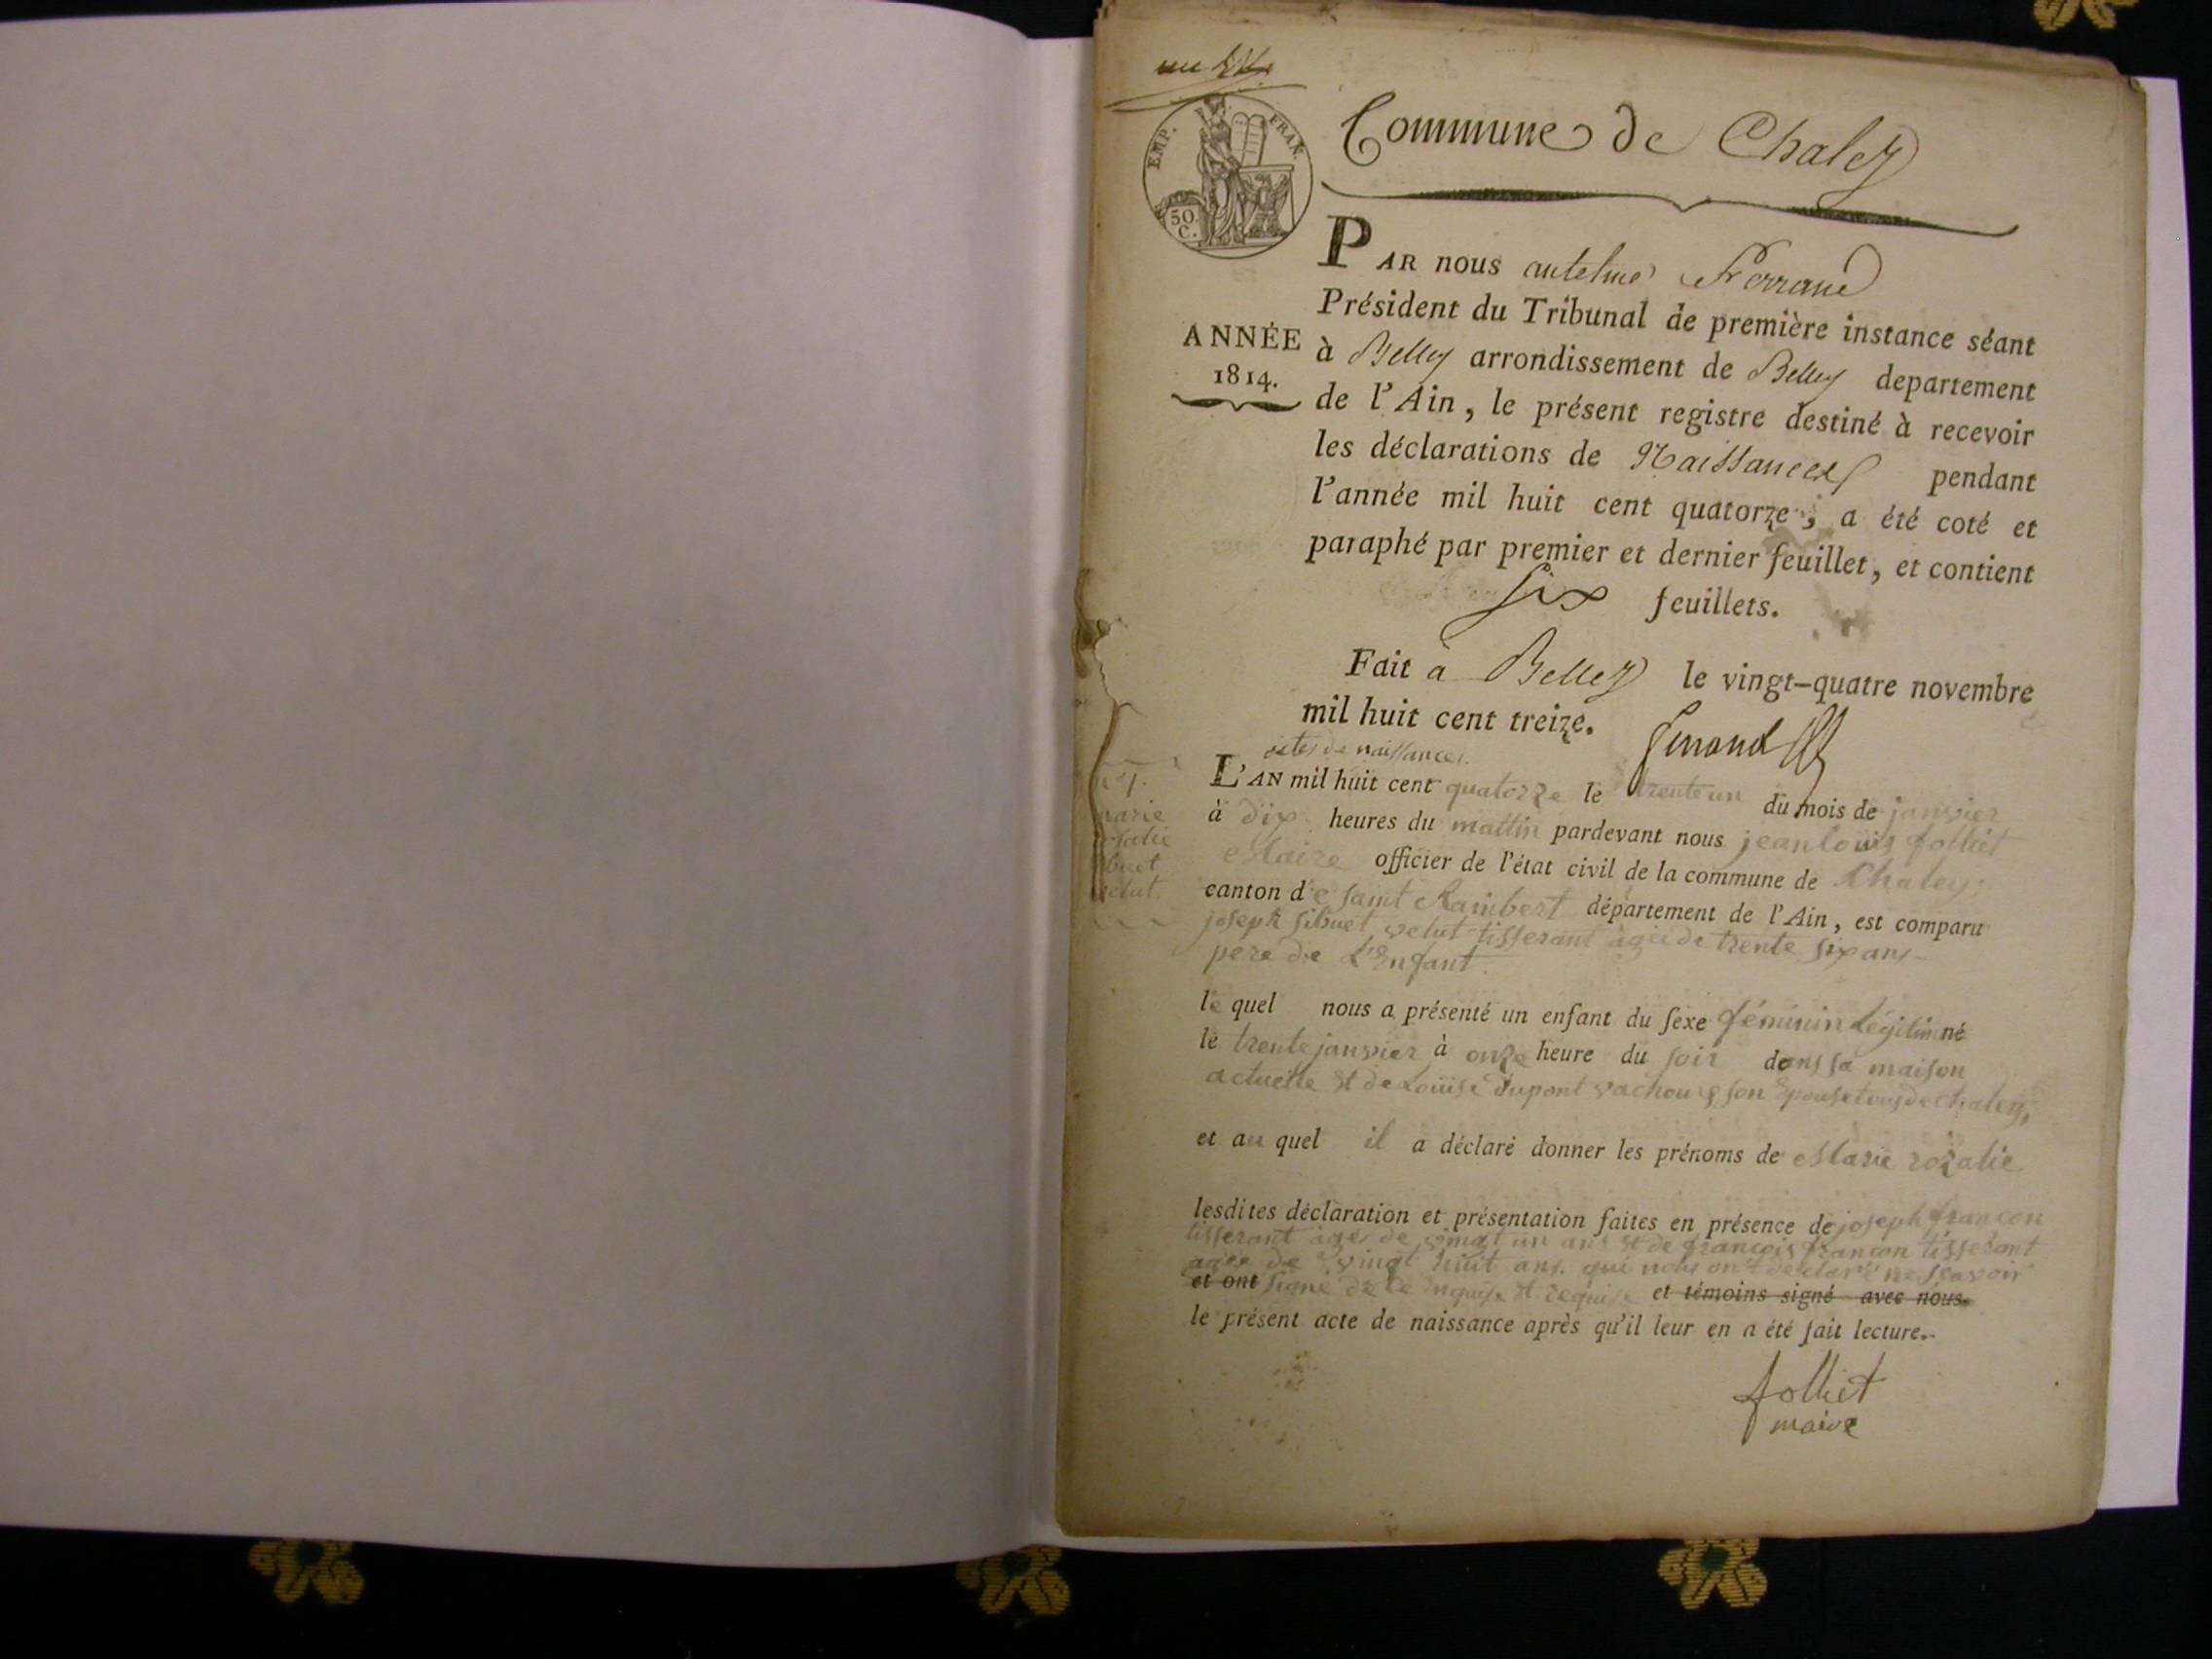 EMP. FRAN.
50 C.
Commune de Chaley
PAR nous antelme Ferrand
Président du Tribunal de première instance séant
ANNÉE
1814.
à Belley arrondissement de Belley departement
de l'Ain, le présent registre destiné à recevoir
les déclarations de Naissances pendant
l'année mil huit cent quatorze, a été coté et
paraphé par premier et dernier feuillet, et contient
six feuillets.
Fait à Belley le vingt-quatre novembre
mil huit cent treize.
actes de naissances.
L'AN mil huit cent quatorze le trente un du mois de janvier
à dix heures du mattin pardevant nous jean louis folliet
Maire officier de l'état civil de la commune de Chaley
canton de saint Rambert département de l'Ain, est comparu
joseph sibuet velut tisserant agé de trente six ans
pere de L'Enfant.
le quel nous a présenté un enfant du sexe féminin Légitim né
le trente janvier à onze heure du soir dans sa maison
actuelle et de Louise dupont vachoux son Epouse tous de chaley,
et au quel il a déclaré donner les prénoms de Marie rozalie
lesdites déclaration et présentation faites en présence de joseph françon
tisserant agé de vingt un ans et de françois françon tisserant
agée de vingt huit ans. qui nous ont déclaré ne scavoir
et ont signé de ce enquis et requis et témoins signé avec nous.
le présent acte de naissance après qu'il leur en a été fait lecture.
folliet
maire